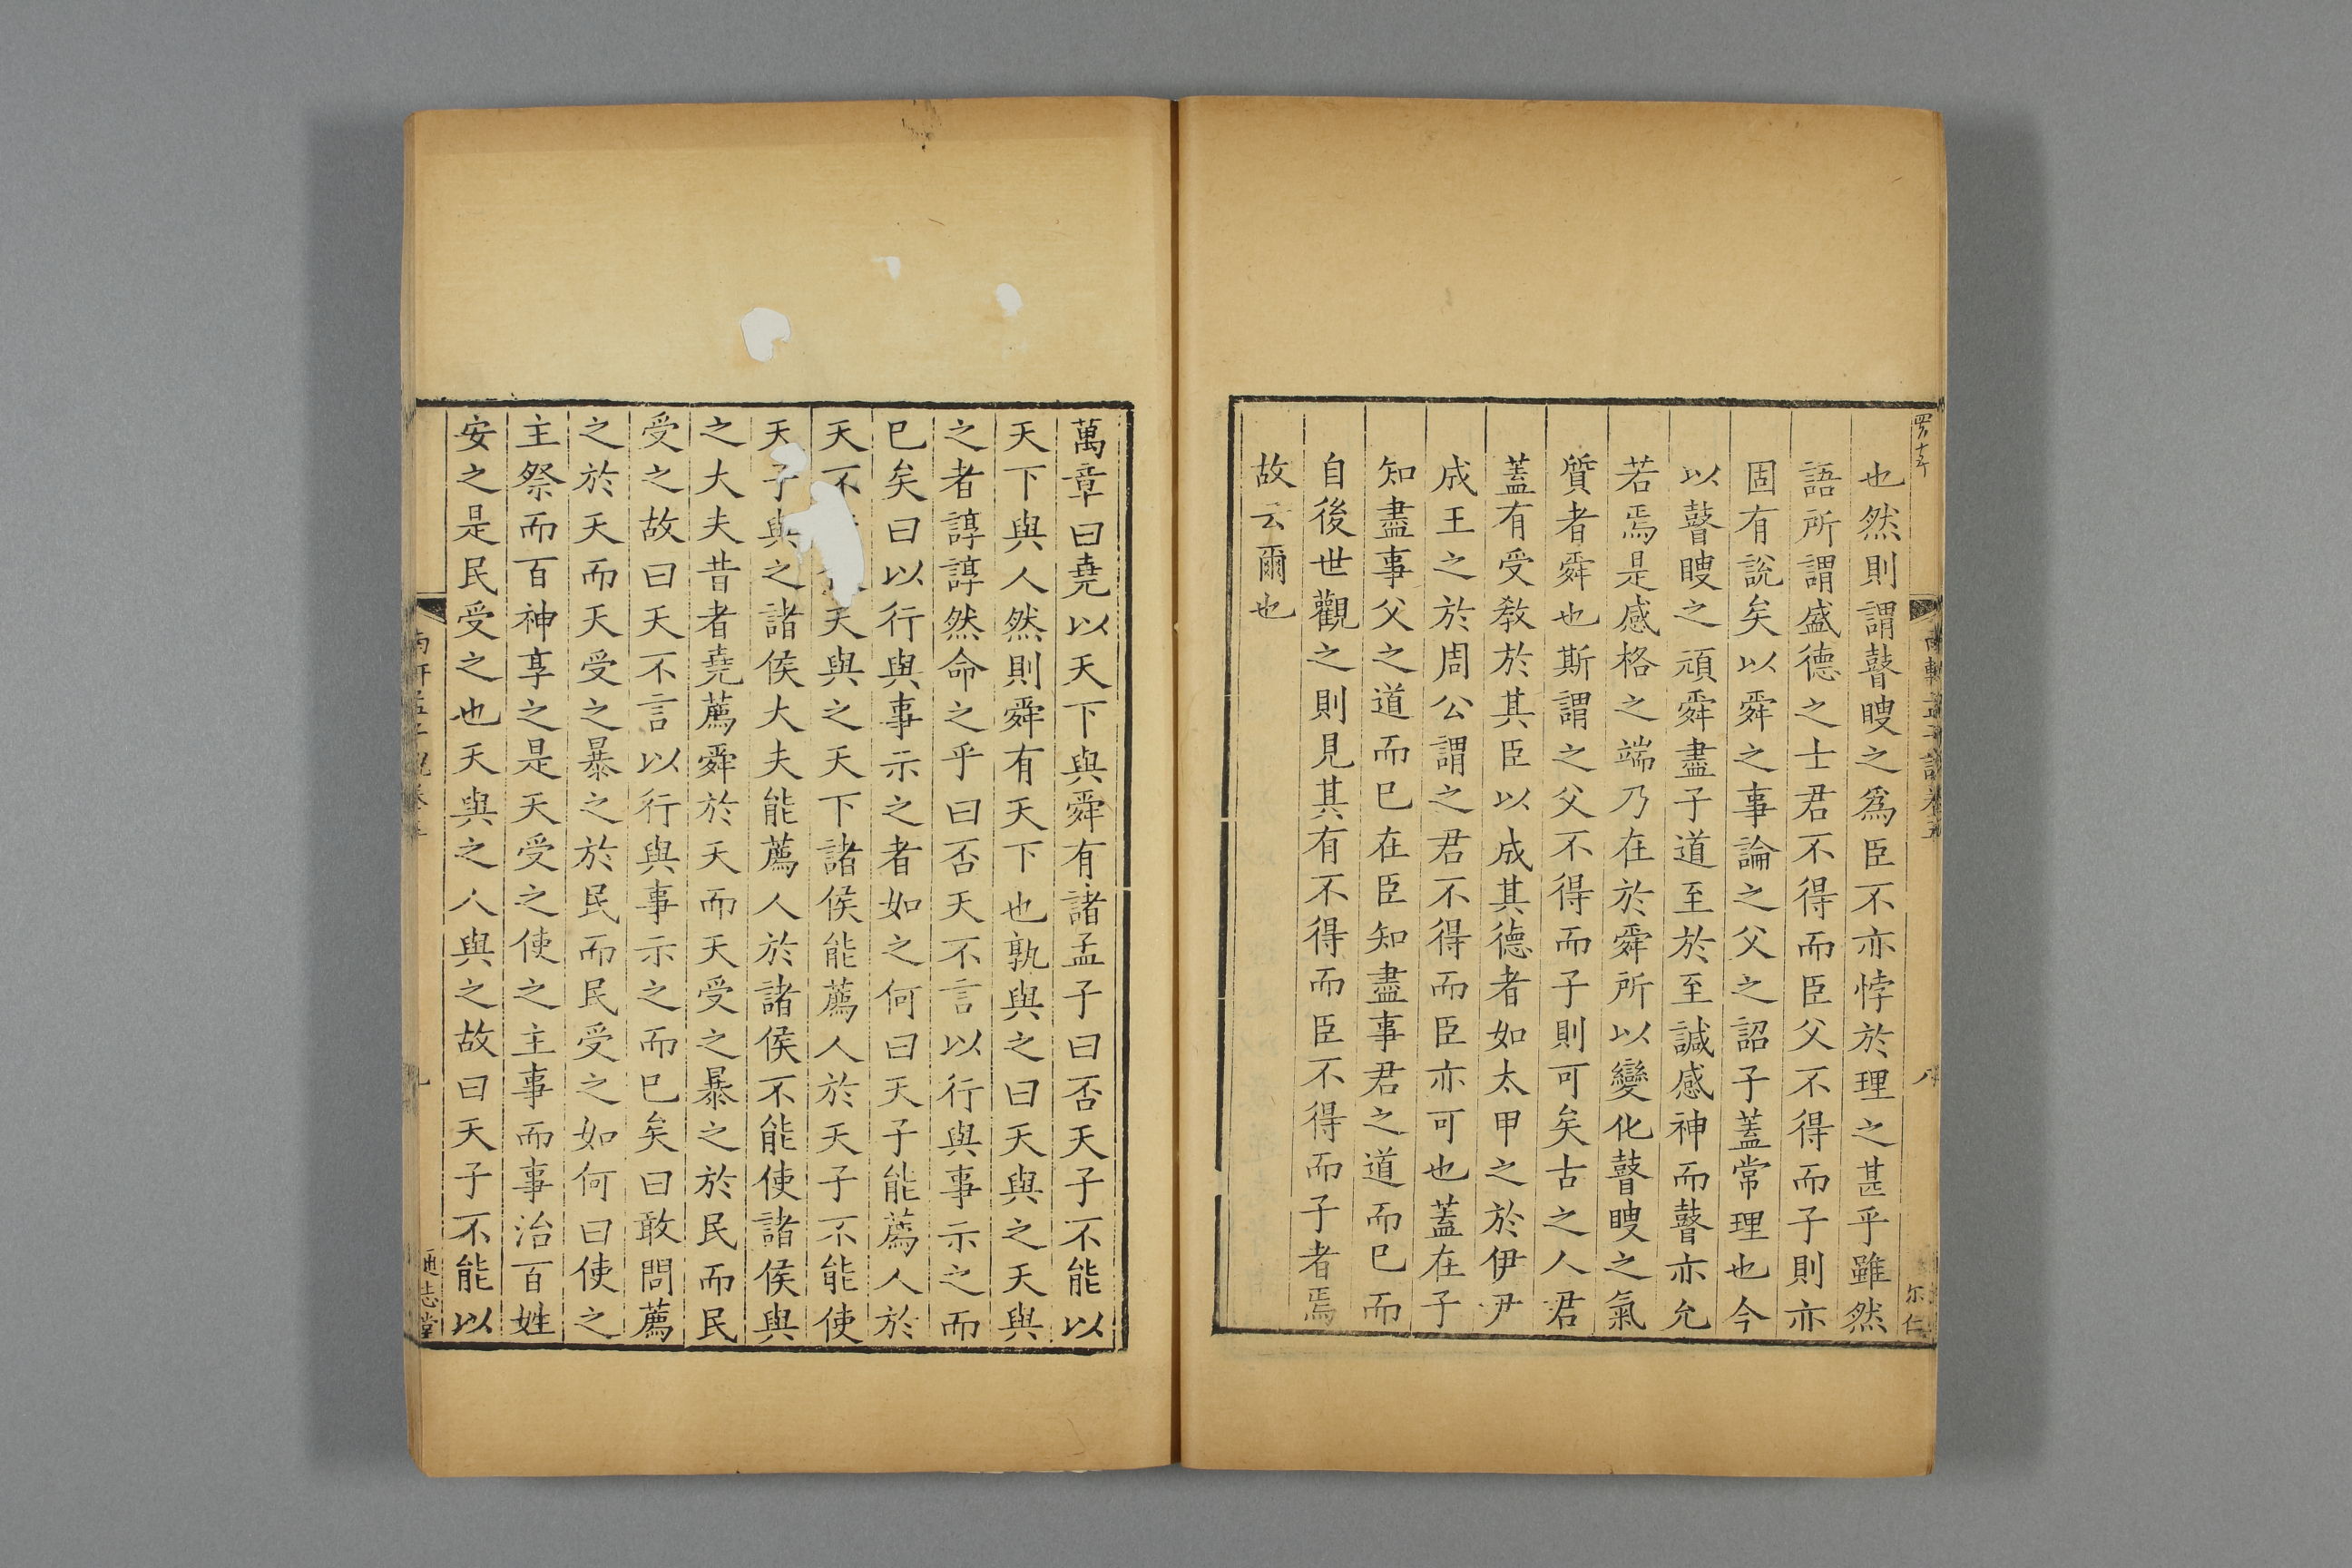 也然則謂瞽瞍之爲臣不亦悖於理之甚乎雖然
語所謂盛德之士君不得而臣父不得而子則亦
固有說矣以舜之事論之父之詔子蓋常理也今
以瞽瞍之頑舜盡子道至於至諴感神而瞽亦允
若焉是感格之端乃在於舜所以變化瞽瞍之氣
質者舜也斯謂之父不得而子則可矣古之人君
蓋有受教於其臣以成其德者如太甲之於伊尹
成王之於周公謂之君不得而臣亦可也蓋在子
知盡事父之道而已在臣知盡事君之道而已而
自後世觀之則見其有不得而臣不得而子者焉
故云爾也
萬章曰堯以天下與舜有諸孟子曰否天子不能以
天下與人然則舜有天下也孰與之曰天與之天與
之者諄諄然命之乎曰否天不言以行與事示之而
已矣曰以行與事示之者如之何曰天子能薦人於
天不天與之天下諸侯能薦人於天子不能使
天子與之諸侯大夫能薦人於諸侯不能使諸侯與
之大夫昔者堯薦舜於天而天受之暴之於民而民
受之故曰天不言以行與事示之而已矣曰敢問薦
之於天而天受之暴之於民而民受之如何曰使之
主祭而百神享之是天受之使之主事而事治百姓
安之是民受之也天與之人與之故曰天子不能以
通志堂